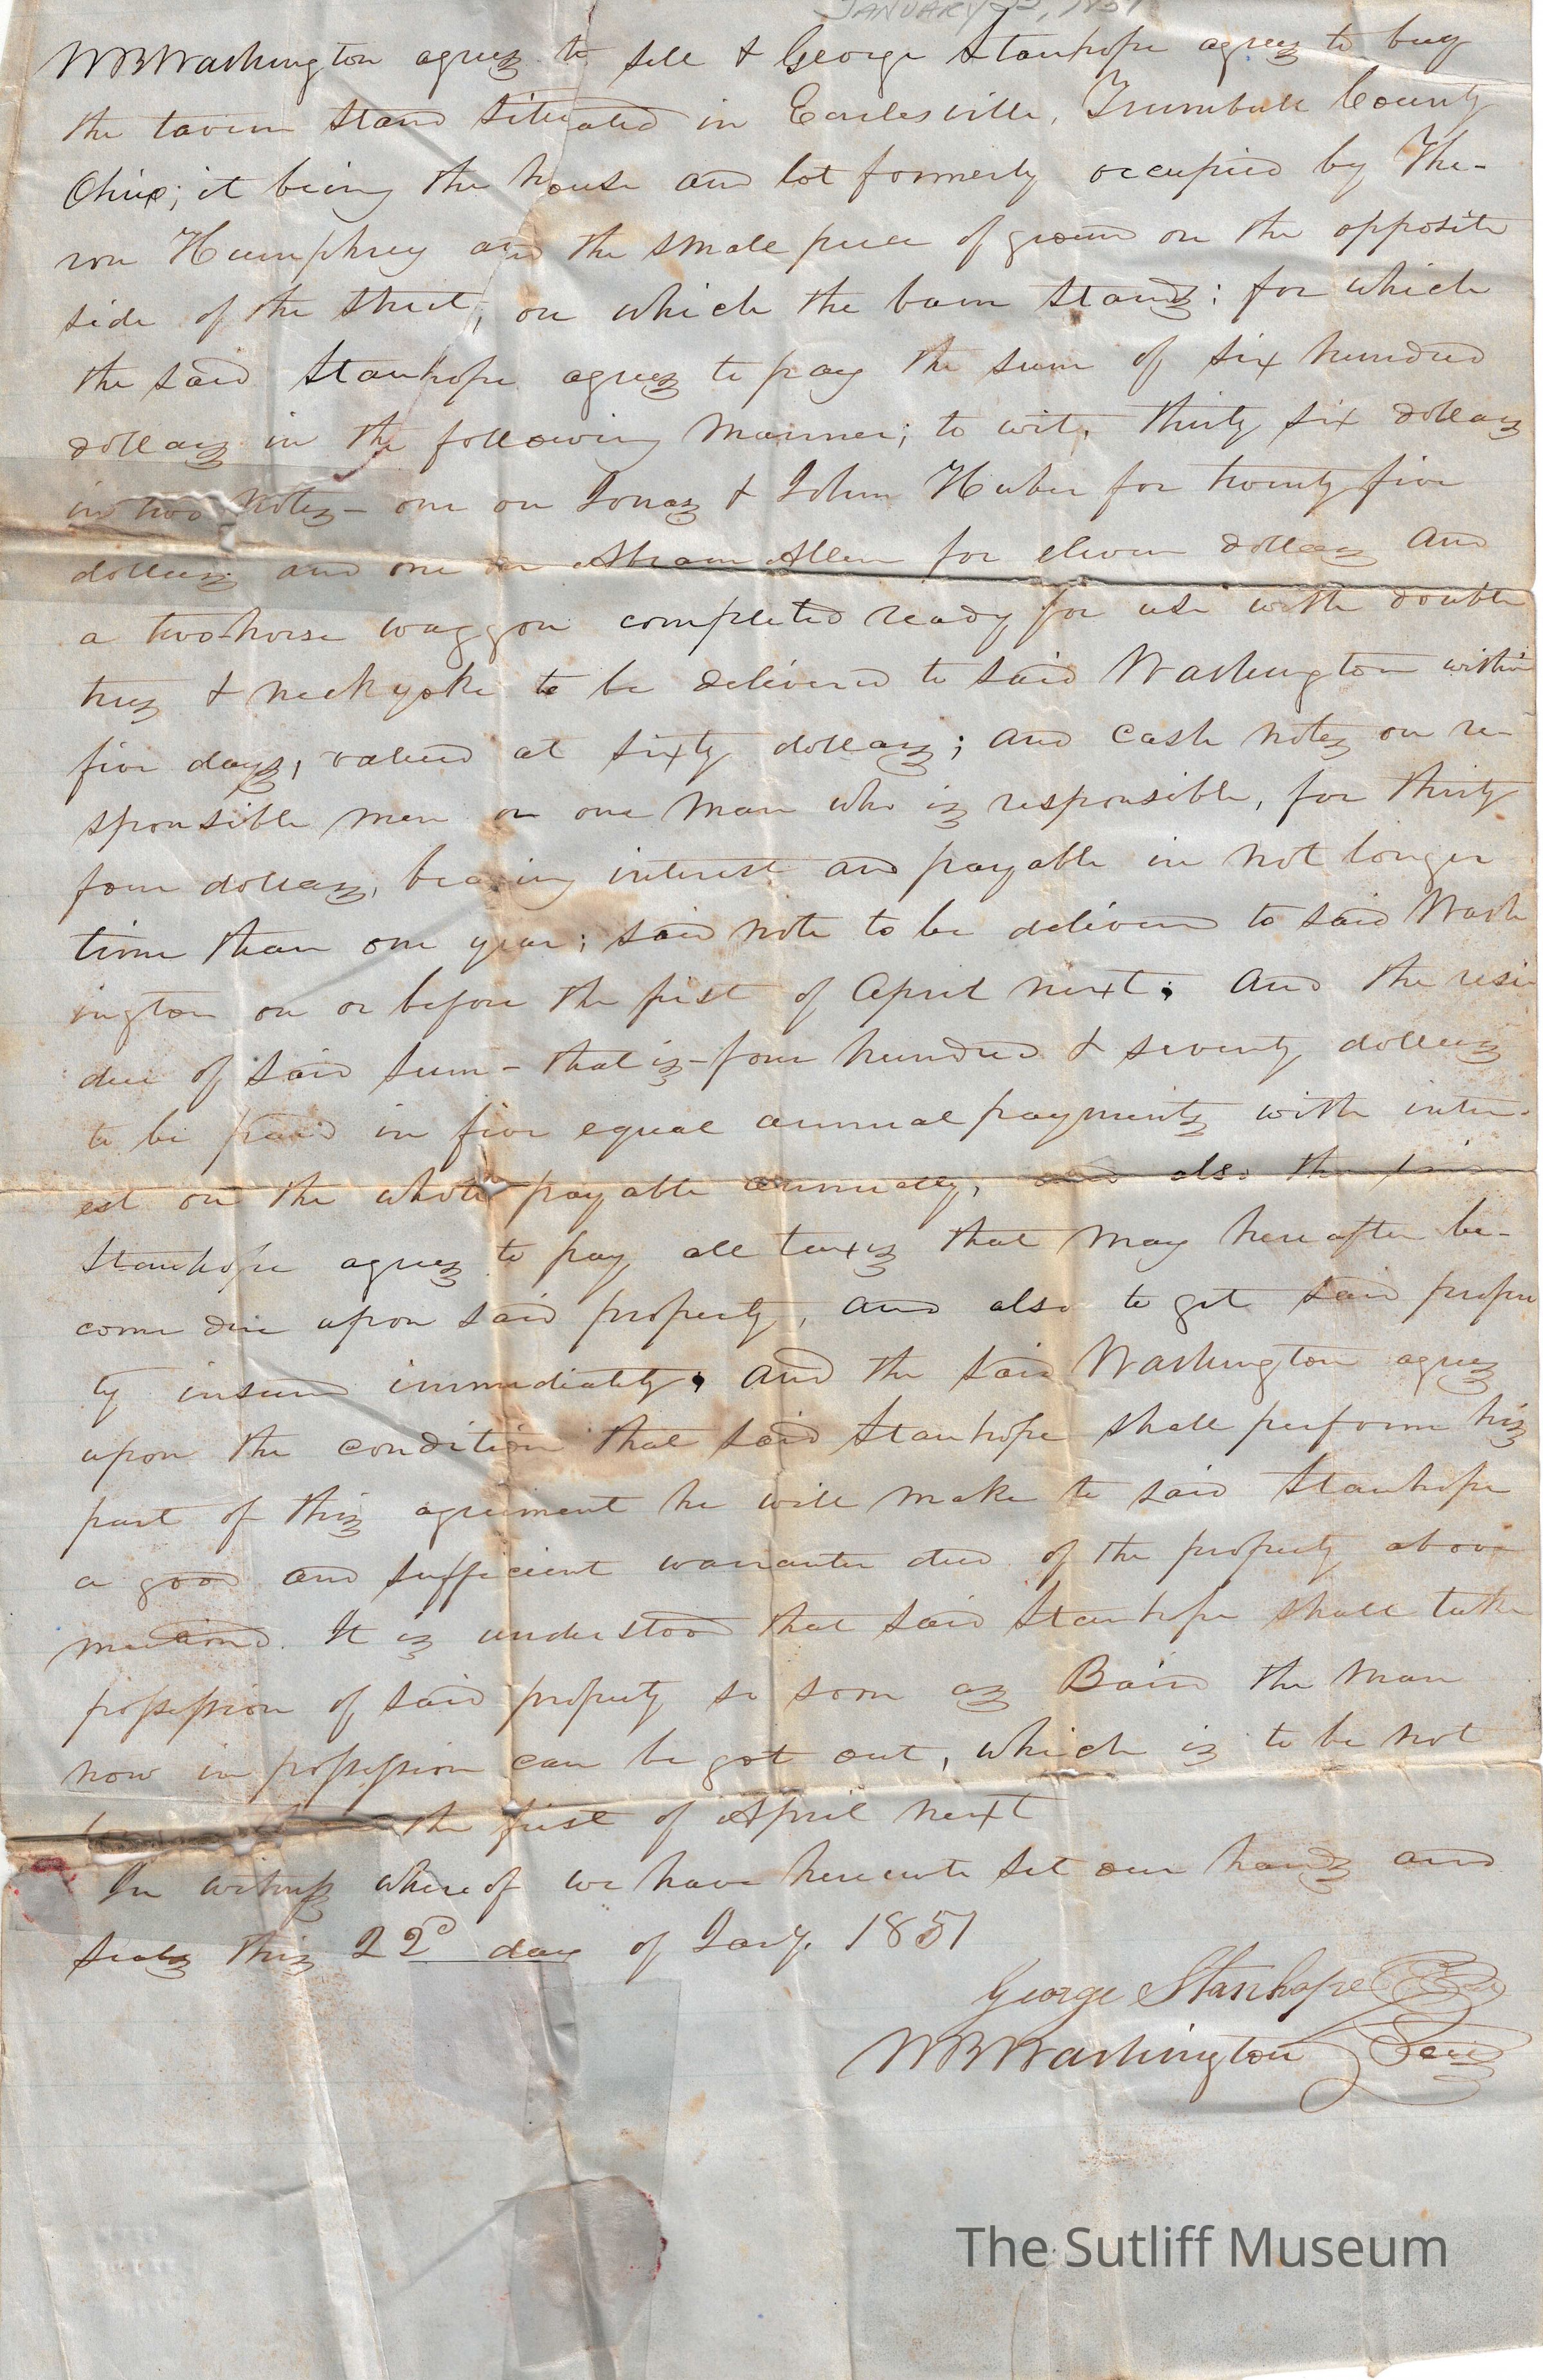 JANUARY 22, 1851
WBWashington agrees to sell & George Stanhope agrees to buy
the tavern stand situated in Earlesville, Trumbull County
Ohio; it being the house and lot formerly occupied by The-
ron Humphrey and the small piece of ground on the opposite
side of the street, on which the barn stands; for which
the said Stanhope agrees to pay the sum of six hundred
dollars in the following manner; to wit, thirty six dollars
in two notes – one on Jonas & John Huber for twenty five
dollars and one on Abram Allen for eleven dollars and
a two-horse waggon completed ready for use with double
trees & neckyoke to be delivered to said Washington within
five days, valued at sixty dollars; and cash notes on re-
sponsible men or one man who is responsible, for thirty
four dollars, bearing interest and payable in not longer
time than one year; said note to be delivered to said Wash
ington on or before the first of April next; And the resi
due of said sum – that is – four hundred & seventy dollars
to be paid in five equal annual payments with inter-
est on the whole payable annually, and also the said
Stanhope agrees to pay all taxes that may hereafter be-
come due upon said property, and also to get said proper
ty insured immediately. And the said Washington agrees
upon the condition that said Stanhope shall perform his
part of this agreement he will make to said Stanhope
a good and sufficient warrantee deed of the property above
mentioned. It is understood that said Stanhope shall take
possession of said property so soon as Baird the man
now in possession can be got out, which is to be not
the first of April next
In witness whereof we have hereunto set our hands and
seals this 22d day of Jany. 1851
George Stanhope
WBWashington Seal
The Sutliff Museum